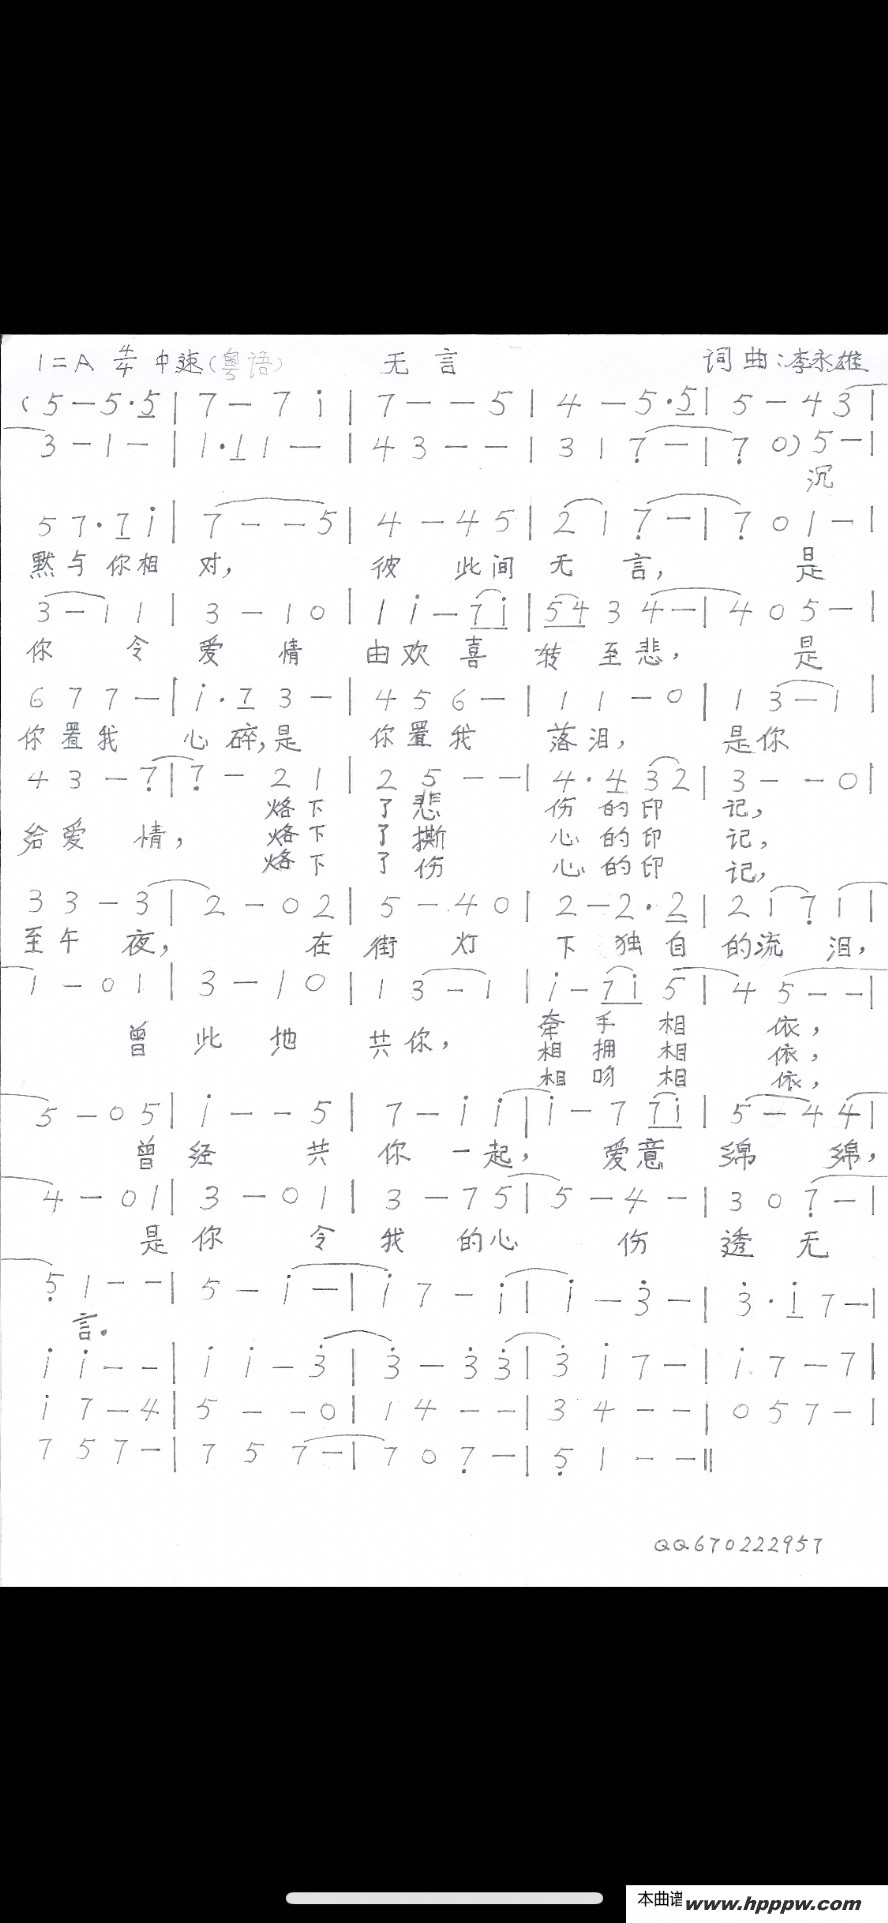 1=A 4/4 中速(粤语) 无言 词曲:李永雄
(5 — 5·5 | 7 — 7 i | 7 — — 5 | 4 — 5·5 | 5 — 4 3 |
3 — 1 — | 1·1 1 — | 4 3 — — | 3 1 7 — | 7 0) 5 — |
沉
5 7·7 i | 7 — — 5 | 4 — 4 5 | 2 1 7 — | 7 0 1 — |
默与你相 对, 彼 此间 无 言, 是
3 — 1 1 | 3 — 1 0 | 1 i — 7 i | 5 4 3 4 — | 4 0 5 — |
你 令 爱 情 由欢 喜 转 至悲, 是
6 7 7 — | i·7 3 — | 4 5 6 — | 1 1 — 0 | 1 3 — 1 |
你置我 心 碎,是 你置我 落泪, 是你
4 3 — 7 | 7 — 2 1 | 2 5 — — | 4·4 3 2 | 3 — — 0 |
烙下 了 悲 伤 的印 记,
给爱 情, 烙下 了 撕 心 的印 记,
烙下 了 伤 心 的印 记,
3 3 — 3 | 2 — 0 2 | 5 — 4 0 | 2 — 2·2 | 2 1 7 1 |
至午 夜, 在 街 灯 下 独 自 的流 泪,
1 — 0 1 | 3 — 1 0 | 1 3 — 1 | i — 7 i 5 | 4 5 — — |
牵 手 相 依,
曾 此 地 共你, 相 拥 相 依,
相 吻 相 依,
5 — 0 5 | i — — 5 | 7 — i i | i — 7 7 i | 5 — 4 4 |
曾 经 共 你 一起, 爱意 绵 绵,
4 — 0 1 | 3 — 0 1 | 3 — 7 5 | 5 — 4 — | 3 0 7 — |
是 你 令 我 的心 伤 透 无
5 1 — — | 5 — i — | i 7 — i | i — 3 — | 3·i 7 — |
言。
i i — — | i i — 3 | 3 — 3 3 | 3 i 7 — | i 7 — 7 |
i 7 — 4 | 5 — — 0 | 1 4 — — | 3 4 — — | 0 5 7 — |
7 5 7 — | 7 5 7 — | 7 0 7 — | 5 1 — — ‖
QQ670222957
本曲谱 www.hpppw.com